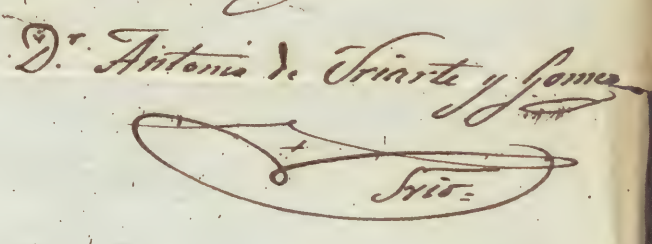 Dr. Antonio de Yriarte y Gomez
Srio=